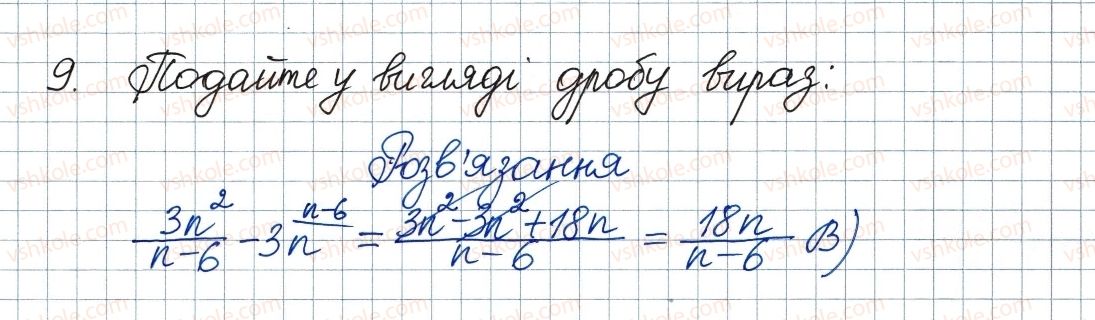 9. Подайте у вигляді дробу вираз:
Розв'язання
3n²/(n-6) - 3n^(n-6) = (3n² - 3n² + 18n)/(n-6) = 18n/(n-6) В)